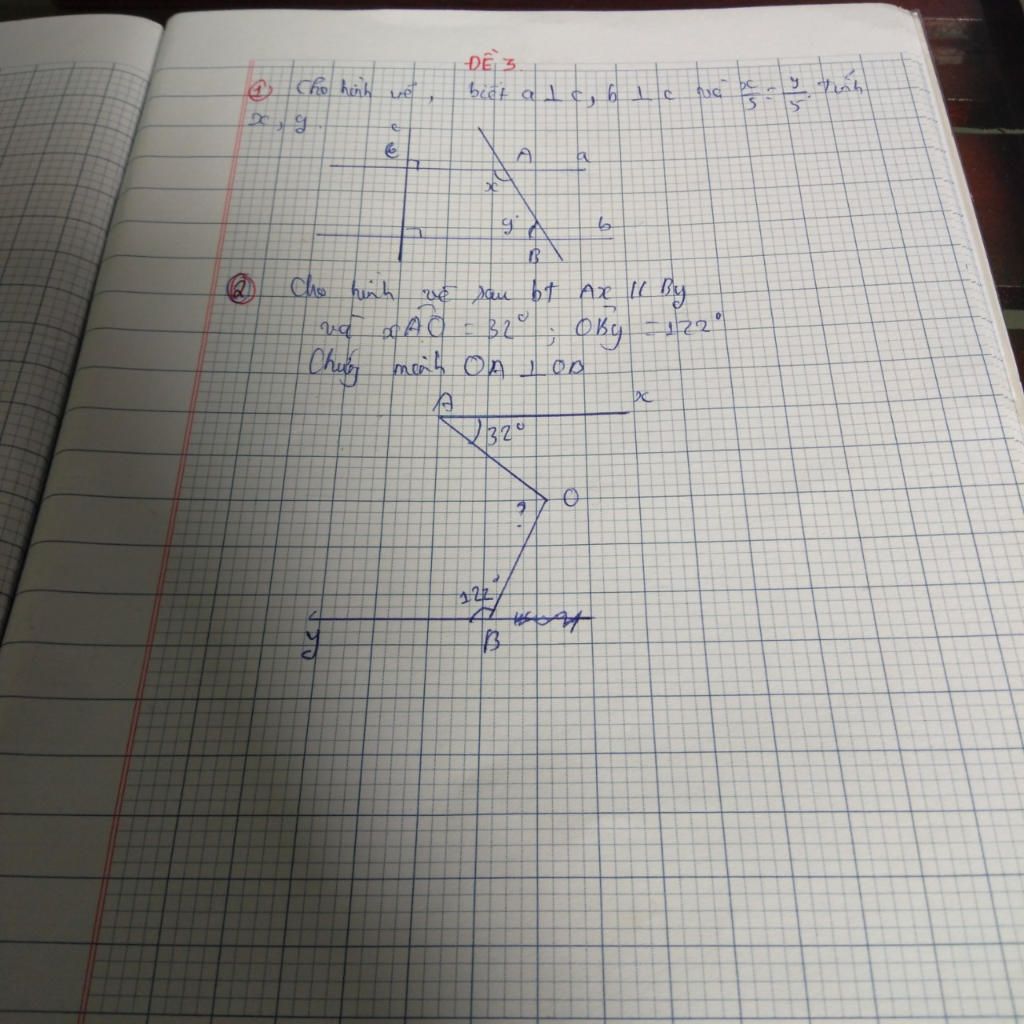 ĐỀ 3
① Cho hình vẽ, biết a ⊥ c, b ⊥ c và x/5 = y/5. Tính
x, y.
c
A a
x
y b
B
② Cho hình vẽ sau bt Ax // By
và xAO = 32°; OBy = 122°
Chứng minh OA ⊥ OB
A x
32°
O
?
122°
y B